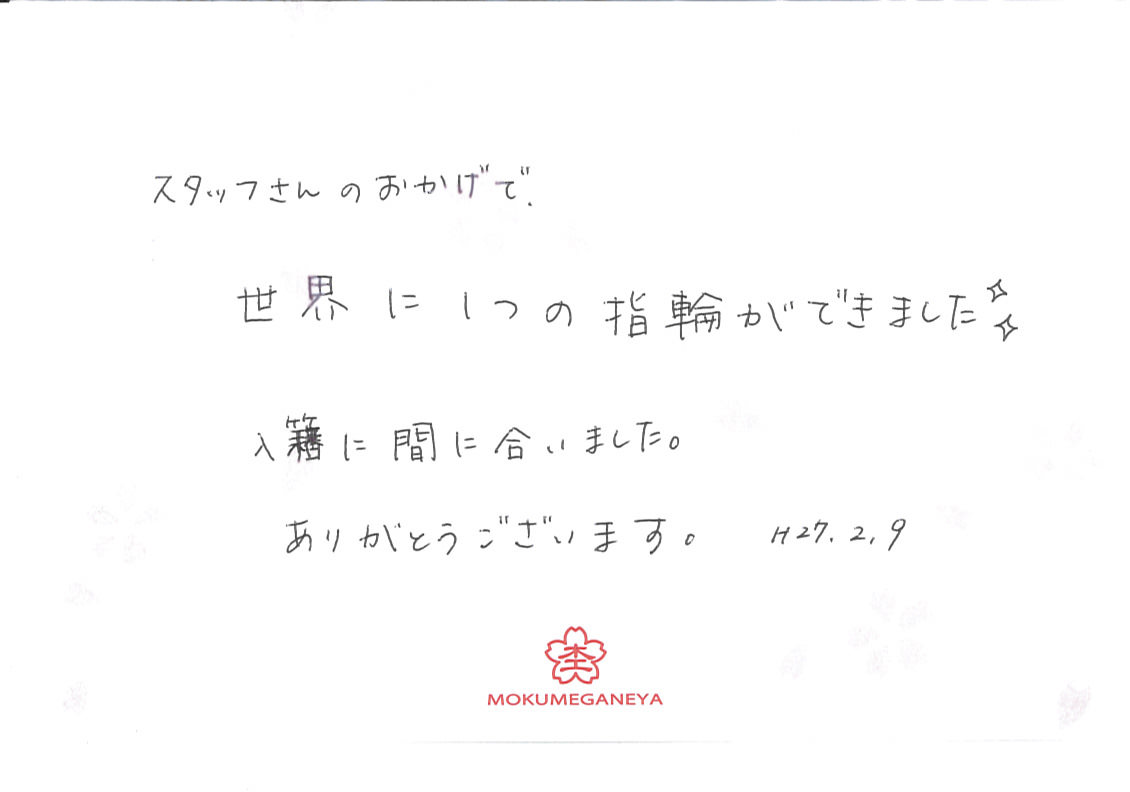 スタッフさんのおかげで、
世界に1つの指輪ができました✧✧
入籍に間に合いました。
ありがとうございます。 H27.2.9
MOKUMEGANEYA